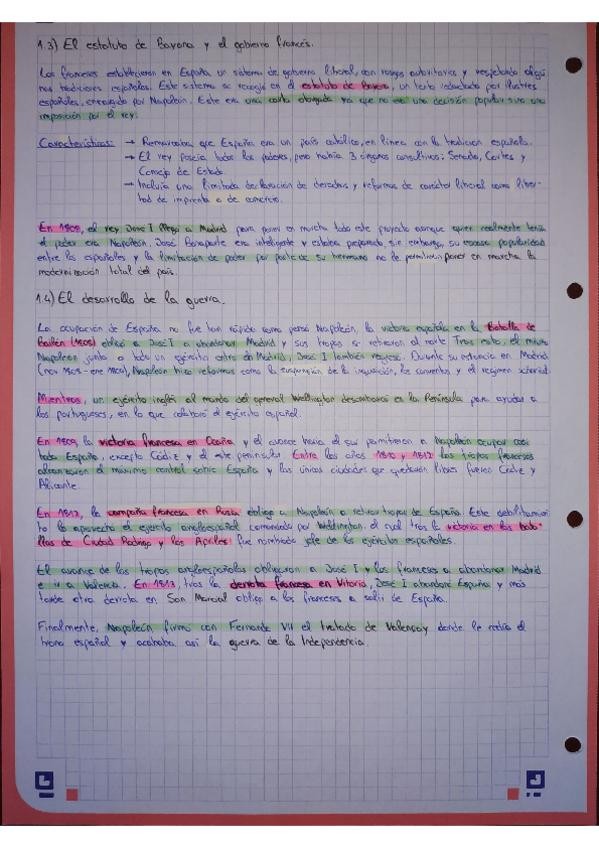 1.3) El estatuto de Bayona y el gobierno francés.
Los franceses establecieron en España un sistema de gobierno liberal, con rasgos autoritarios y respetando algu
nas tradiciones españolas. Este sistema se recogió en el estatuto de Bayona, un texto redactado por ilustres
españoles, encargado por Napoleón. Este era una carta otorgada ya que no era una decisión popular sino una
imposición por el rey.
Características: → Remarcaba que España era un país católico, en línea con la tradición española.
→ El rey poseía todos los poderes, pero había 3 órganos consultivos: Senado, Cortes y
Consejo de Estado.
→ Incluía una limitada declaración de derechos y reformas de carácter liberal como liber-
tad de imprenta o de comercio.
En 1808, el rey José I llegó a Madrid para poner en marcha todo este proyecto aunque quien realmente tenía
el poder era Napoleón. José Bonaparte era inteligente y estaba preparado, sin embargo, su escasa popularidad
entre los españoles y la limitación de poder por parte de su hermano no le permitieron poner en marcha la
modernización total del país.
1.4) El desarrollo de la guerra.
La ocupación de España no fue tan rápida como pensó Napoleón, la victoria española en la Batalla de
Bailén (1808) obligó a José I a abandonar Madrid y sus tropas se retiraron al norte. Tras esto, el mismo
Napoleón junto a todo un ejército entró en Madrid, José I también regresó. Durante su estancia en Madrid
(nov 1808-ene 1809), Napoleón hizo reformas como la supresión de la inquisición, los conventos y el régimen señorial.
Mientras, un ejército inglés al mando del general Wellington desembarcó en la Península para ayudar a
los portugueses, en lo que colaboró el ejército español.
En 1809, la victoria francesa en Ocaña y el avance hacia el sur permitieron a Napoleón ocupar casi
toda España, excepto Cádiz y el este peninsular. Entre los años 1810 y 1812 las tropas francesas
alcanzaron el máximo control sobre España y las únicas ciudades que quedaron libres fueron Cádiz y
Alicante.
En 1812, la campaña francesa en Rusia obligó a Napoleón a retirar tropas de España. Este debilitamien
to lo aprovechó el ejército angloespañol comandado por Wellington, el cual tras la victoria en las bata
llas de Ciudad Rodrigo y los Arapiles fue nombrado jefe de los ejércitos españoles.
El avance de las tropas angloespañolas obligaron a José I y los franceses a abandonar Madrid
e ir a Valencia. En 1813, tras la derrota francesa en Vitoria, José I abandonó España y más
tarde otra derrota en San Marcial obligó a los franceses a salir de España.
Finalmente, Napoleón firmó con Fernando VII el tratado de Valençay donde le cedía el
trono español y acababa así la guerra de la Independencia.